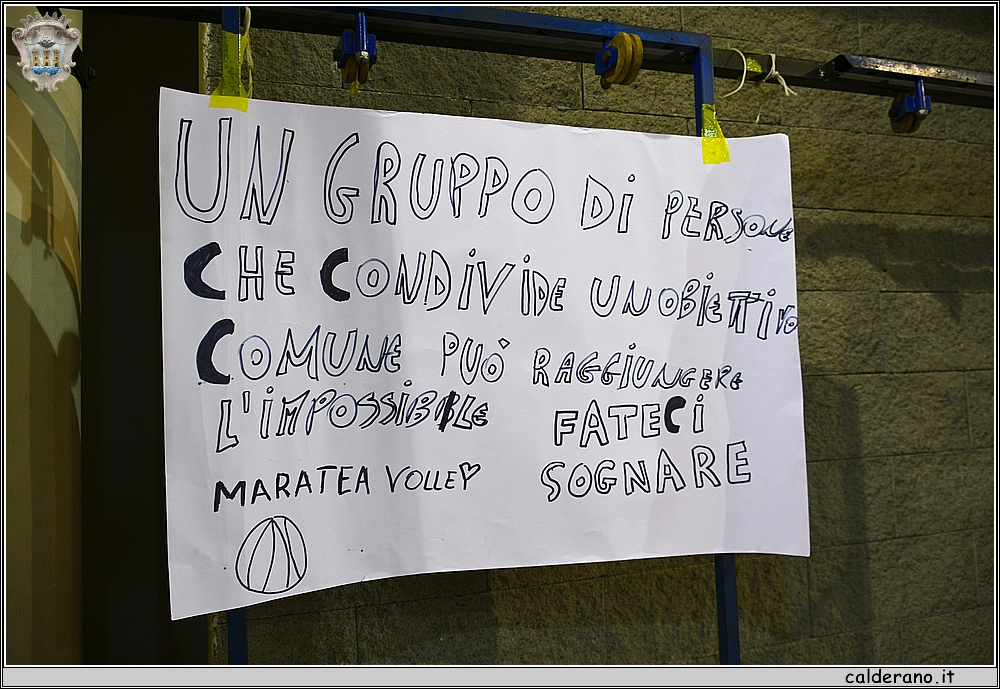 UN GRUPPO DI PERSONE
CHE CONDIVIDE UN OBIETTIVO
COMUNE PUÒ RAGGIUNGERE
L'IMPOSSIBILE FATECI
MARATEA VOLLEY SOGNARE
calderano.it